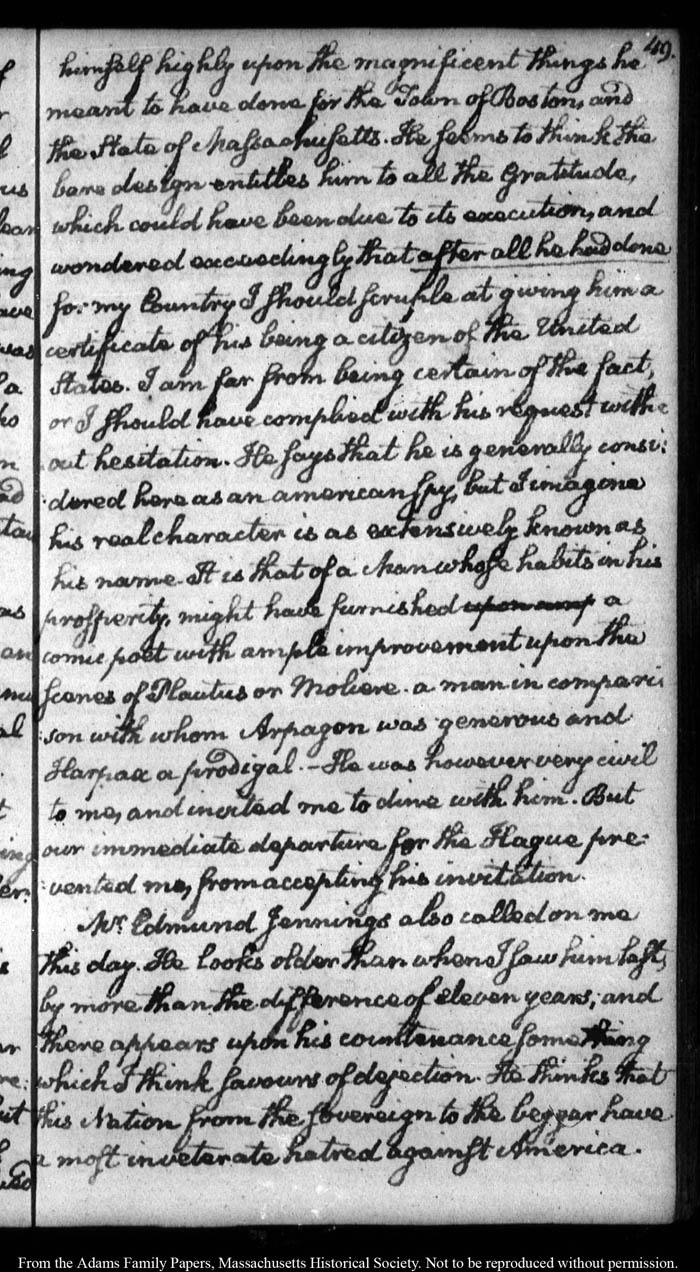 49.
himself highly upon the magnificent things he
meant to have done for the Town of Boston, and
the State of Massachusetts. He seems to think the
bare design entitles him to all the Gratitude,
which could have been due to its execution, and
wondered exceedingly that after all he had done
for my Country I should scruple at giving him a
certificate of his being a citizen of the United
States. I am far from being certain of the fact,
or I should have complied with his request with:
out hesitation. He says that he is generally consi:
:dered here as an american spy, but I imagine
his real character is as extensively known as
his name. It is that of a Man whose habits in his
prosperity, might have furnished upon amp a
comic poet with ample improvement upon the
Scenes of Plautus or Moliere. a man in compari:
:son with whom Arpagon was generous and
Harpax a prodigal.—He was however very civil
to me, and invited me to dine with him. But
our immediate departure for the Hague pre:
:vented me, from accepting his invitation.
Mr. Edmund Jennings also called on me
this day. He looks older than when I saw him last,
by more than the difference of eleven years; and
there appears upon his countenance something
which I think savours of dejection. He thinks that
this Nation from the sovereign to the beggar have
a most inveterate hatred against America.
From the Adams Family Papers, Massachusetts Historical Society. Not to be reproduced without permission.